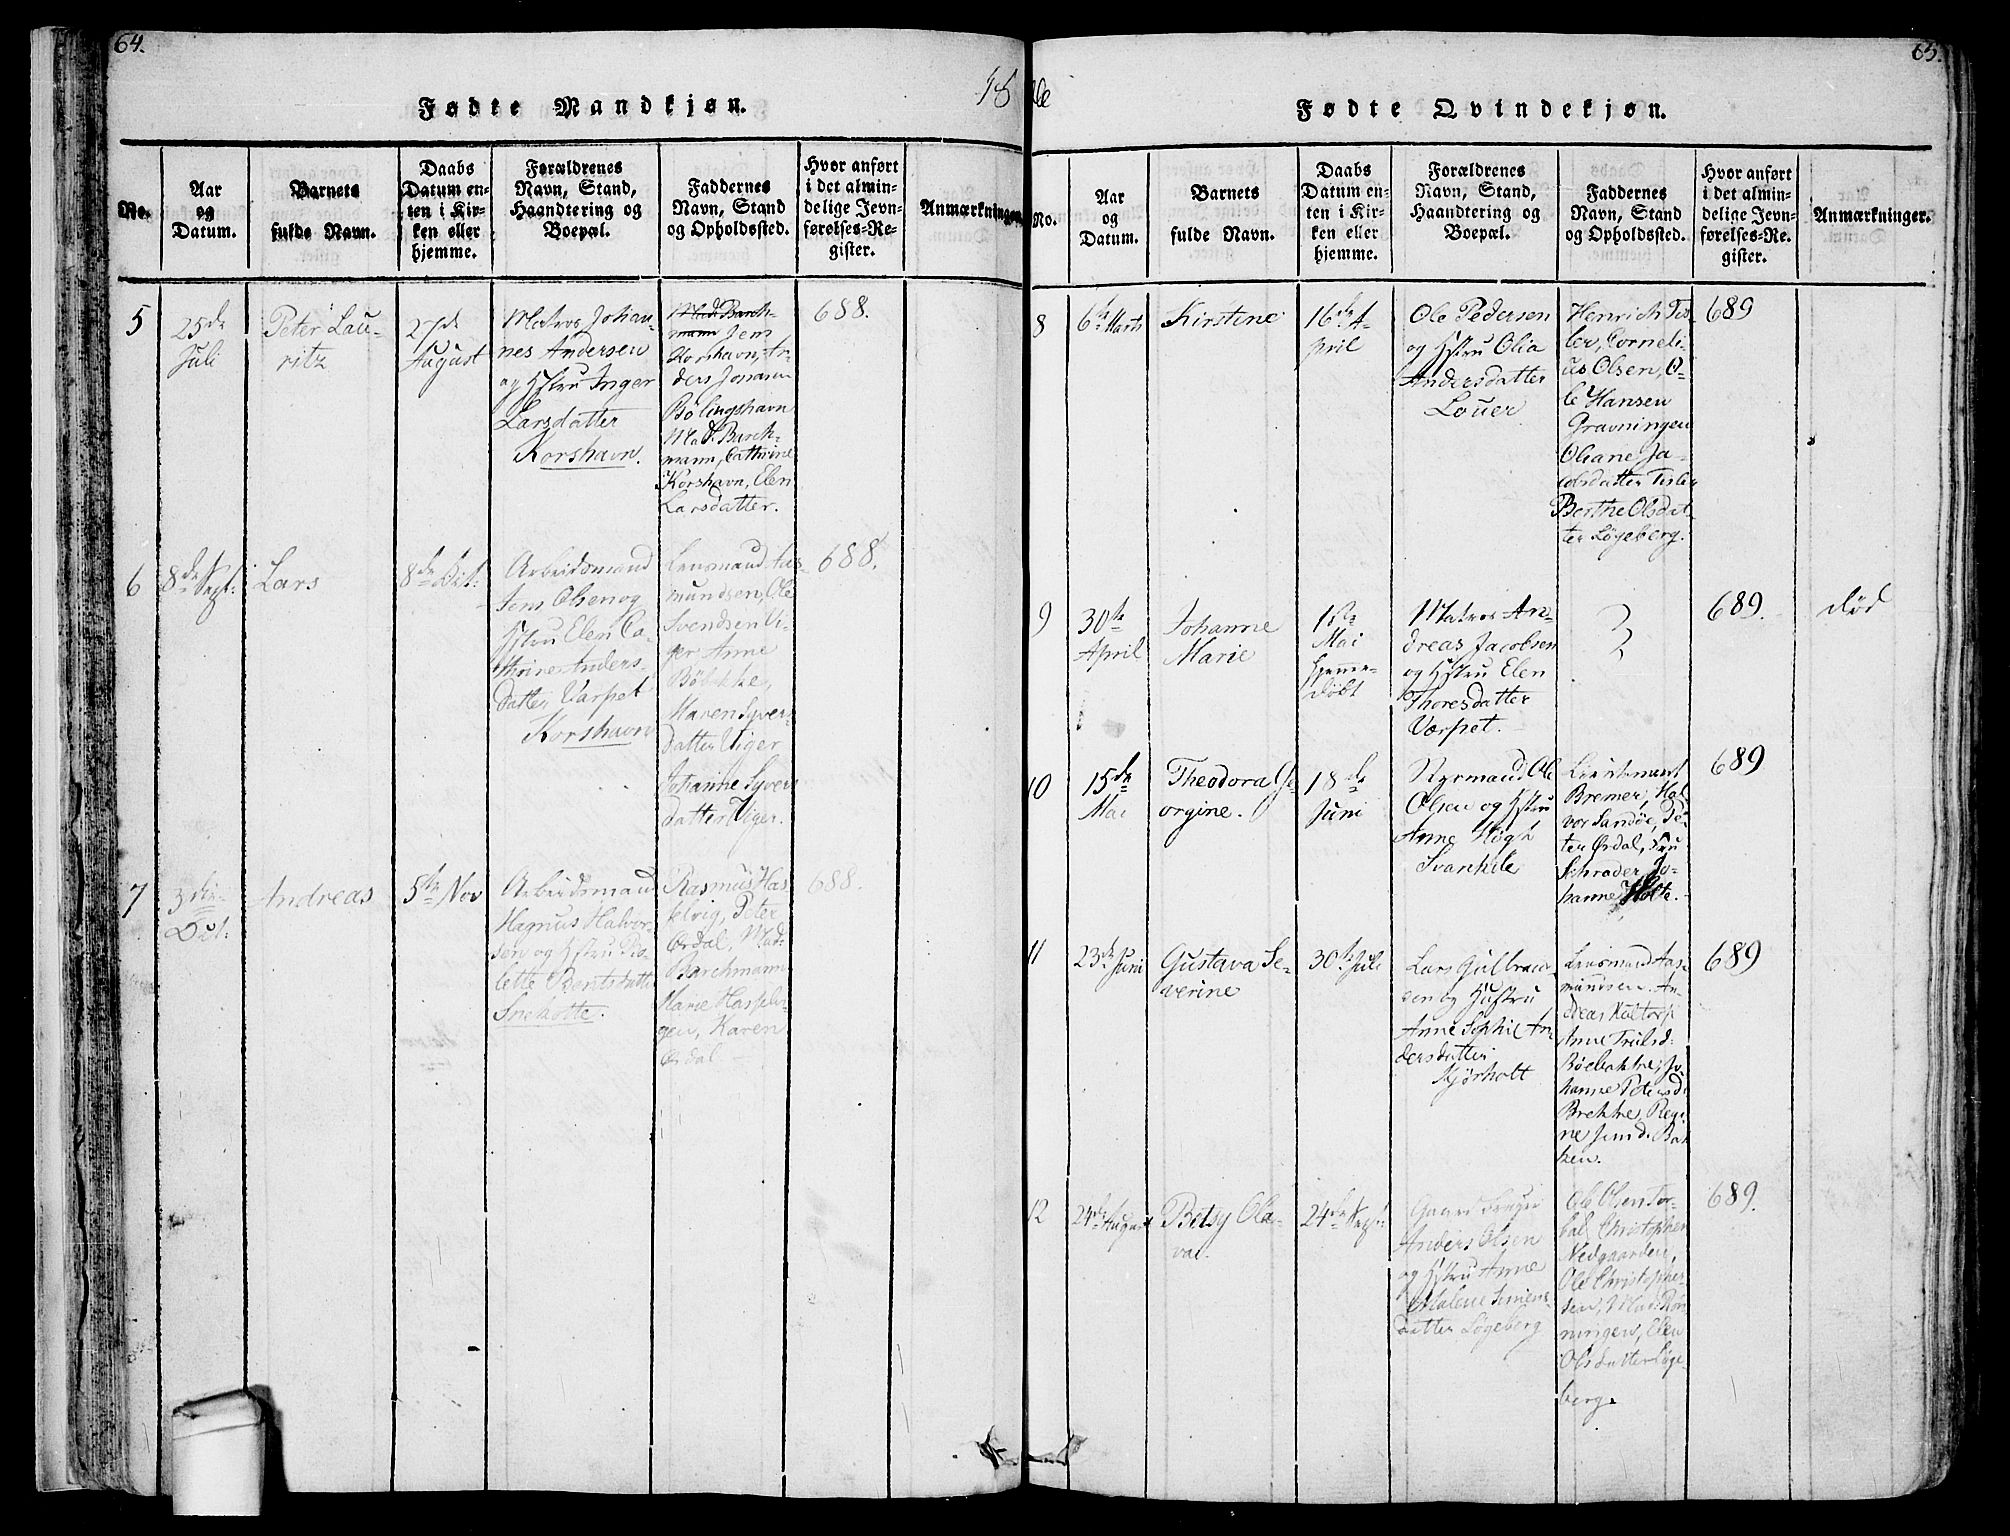 64.
18
Fødte Mandkjøn.
No.
Aar
og
Datum.
Barnets
fulde Navn.
Daabs
Datum en-
ten i Kir-
ken eller
hjemme.
Forældrenes
Navn, Stand,
Haandtering og
Boepæl.
Faddernes
Navn, Stand
og Opholdssted.
Hvor anført
i det almin-
delige Jevn-
førelses-Re-
gister.
Anmærkninger.
5
25de
Juli
Peter Lau-
ritz
27de
August
Matros Johan-
nes Andersen
og Hstru Inger
Larsdatter
Korshavn.
Mad: Barch-
mann Jens
Korshavn, An-
ders Johann
Bølingshavn
Mad. Barch-
mann, Cathrine
Korshavn, Elen
Larsdatter.
688.
6
8de Sept:
Lars
8de Oct:
Arbeidsmand
Jens Olsen og
Hstru Elen Ca-
thrine Anders-
datter Værpet
Korshavn
Lensmand Aas-
mundsen, Ole
Svendsen Vi-
ger Anne
Bøbakke,
Maren Syver-
datter Viger
Johanne Syver
datter Viger.
688.
7
3die
Oct:
Andreas
5te Nov
Arbeidsmand
Magnus Halvor-
sen og Hstru
lette Bentsdatte
Snekotte.
Rasmus Has-
selvig, Peter
Ørdal, Mad:
Barchmann
Marie Hassel-
gen, Karen
Ørdal
688.
65.
Fødte Qvindekjøn.
No.
Aar
og
Datum.
Barnets
fulde Navn.
Daabs
Datum en-
ten i Kir-
ken eller
hjemme.
Forældrenes
Navn, Stand,
Haandtering og
Boepæl.
Faddernes
Navn, Stand
og Opholdssted.
Hvor anført
i det almin-
delige Jevn-
førelses-Re-
gister.
Anmærkninger.
8
6te Marts
Kirstine
16de A-
pril
Ole Pedersen
og Hstru Olia
Andersdatter
Louer
Henrich Tis-
ler, Corneli-
us Olsen, O-
le Hansen
Gravningen
Oliane Ja-
cobsdatter Tisler
Berthe Olsdat-
ter Løgeberg.
689
9
30te
April
Johanne
Marie
1ste
Mai
Hjemme-
døbt
Matros An-
dreas Jacobsen
og Hstru Elen
Thoresdatter
Værpet.
689.
død
10
15de
Mai
Theodora Ge-
orgine.
18de
Juni
Styrmand Ole
Olsen og Hstru
Anne Høgh
Svankile
Lieutenant
Bremer, Hal-
vor Sandøe, Pe-
ter Ørdal, Fru
Schrøder, Jo-
hanne Holte.
689
11
23de Juni
Gustava Se-
verine
30te Juli
Lars Gulbran-
sen og Hustru
Anne Sophie An-
dersdatter
Kjørholt
Lensmand Aas-
mundsen. An-
dreas Kultorp
Anne Trulsd:
Bøebakke, Jo-
hanne Petersd:
Brekke, Regi-
ne Jensd. Bak
ken.
689
12
24de August
Betsy Ola-
va.
24de Sept:
Gaardbruger
Anders Olsen
og Hstru Anne
Malene Simens-
datter Løgeberg
Ole Olsen Tor-
bal, Christopher
Nedgaarden,
Ole Christopher-
sen, Mad: Røn-
ningen, Elen
Olsdatter Løge
berg.
689.